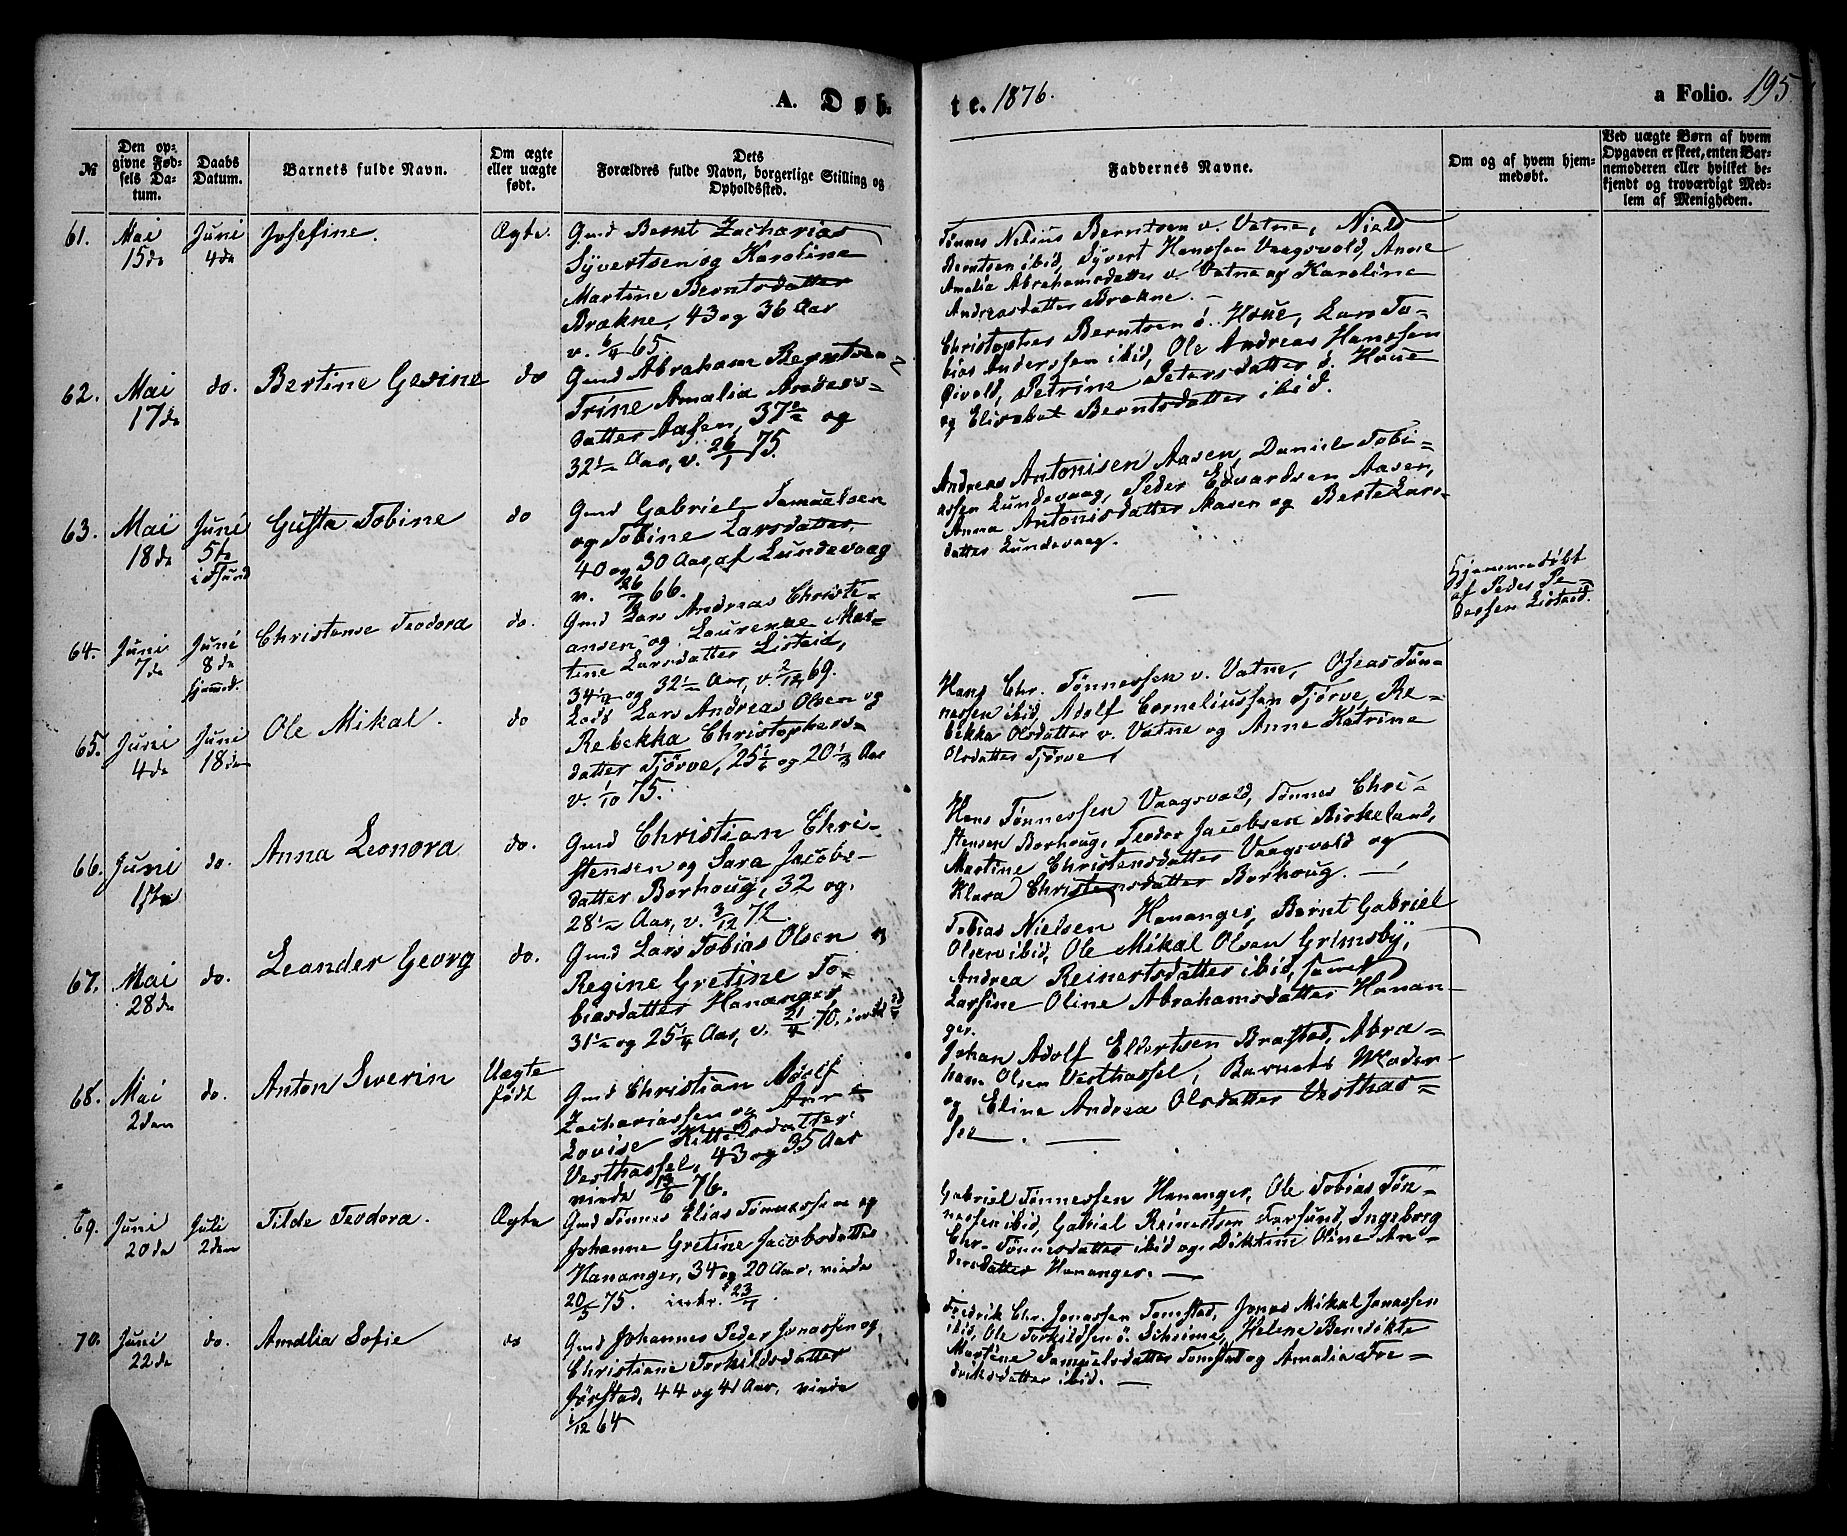 A. Døb-
te. 1876.
a Folio. 195
№
Den op-
givne Fød-
sels Da-
tum.
Daabs
Datum.
Barnets fulde Navn.
Om ægte
eller uægte
født.
Dets
Forældres fulde Navn, borgerlige Stilling og
Opholdssted.
Faddernes Navne.
Om og af hvem hjem-
medøbt.
Ved uægte Børn af hvem
Opgaven er skeet, enten Bar-
nemoderen eller hvilket be-
kjendt og troværdigt Med-
lem af Menigheden.
61.
Mai
15de
Juni
4de
Josefine.
Ægte.
Gmd Bernt Zacharias
Syvertsen og Karoline
Martine Berntsdatter
Brækne, 43 og 36 Aar
v. 6/4 65
Tønnes Nilius Berntsen v. Vatne, Niels
Berntsen ibid, Syvert Hanssen Vaagsvold, Anne
Amalia Abrahamsdatter v. Vatne og Karoline
Andreasdatter Brækne. —
62.
Mai
17de
do.
Bertine Gesine
do
Gmd Abraham Berntsen
Trine Amalia Anders-
datter Aasen, 37 1/2 og
32 1/2 Aar, v. 26/1 75.
Christopher Berntsen ö. Houe, Lars To-
bias Anderssen ibid, Ole Andreas Hanssen
Qivold, Petrine Petersdatter ö. Houe
og Elisabet Berntsdatter ibid.
63.
Mai
18de
Juni
5te
i Fsund
Gusta Tobine
do
Gmd Gabriel Samuelsen
og Tobine Larsdatter,
40 og 30 Aar, af Lundevaag
v. 66.
Andreas Antonisen Aasen, Daniel Tobi-
assen Lundevaag, Peder Edvardsen Aasen,
Anna Antonisdatter Aasen og Berte Lars-
datter Lundevaag.
64.
Juni
7de
Juni
8de
hjemmed.
Christense Teodora
do.
Gmd Lars Andreas Christi-
ansen og Laurense Mar-
tine Larsdatter Listeid,
34 1/2 og 32 1/2 Aar, v. 2/12 69.
—
Hjemmedøbt
af Peder Pe-
dersen Listeid.
65.
Juni
4de
Juni
18de
Ole Mikal.
do
Lods Lars Andreas Olsen og
Rebekka Christophers-
datter Tjørve, 25 1/6 og 20 1/3 Aar
v. 1/10 75.
Hans Chr. Tønnessen v. Vatne, Oseas Tøn-
nessen ibid, Adolf Corneliussen Tjørve, Re-
bekka Olsdatter v. Vatne og Anne Katrine
Olsdatter Tjørve.
66.
Juni
1ste
do.
Anna Leonora
do.
Gmd Christian Chri-
stensen og Sara Jacobs-
datter Borhoug, 32 og
28 1/2 Aar, v. 3/12 72.
Hans Tønnessen Vaagsvold, Tønnes Chri-
stensen Borhoug, Teodor Jacobsen Birkeland,
Martine Christensdatter Vaagsvold og
Klara Christensdatter Borhoug. —
67.
Mai
28de
do.
Leander Georg
do.
Gmd Lars Tobias Olsen og
Regine Gretine To-
biasdatter Hananger
31 1/2 og 25 1/4 Aar, v. 21/4 70.
Tobias Nielsen Hananger, Bernt Gabriel
Olsen ibid, Ole Mikal Olsen Grimsby,
Andrea Reinertsdatter ibid, samt
Larsine Oline Abrahamsdatter Hanan-
ger.
68.
Mai
2den
do.
Anton Severin
Uægte
født
Gmd Christian Adolf
Zachariassen og Anne
Lovise Kittelsdatter
Vesthassel, 43 og 35 Aar
viede 13/6 76.
Johan Adolf Eldertsen Brastad, Abra-
ham Olsen Vesthassel, Barnets Moder
og Eline Andrea Olsdatter Vesthas-
sel. —
69.
Juni
20de
Juli
2den
Tilde Teodora.
Ægte
Gmd Tønnes Elias Tønnessen og
Johanne Gretine Jacobsdatter
Hananger, 34 og 20 Aar, viede
20/5 75. intr. 23/7
Gabriel Tønnessen Hananger, Ole Tobias Tøn-
nessen ibid, Gabriel Reinertsen Farsund, Ingeborg
Chr. Tønnesdatter ibid og Diktine Oline An-
dersdatter Hananger. —
70.
Juni
22de
do.
Amalia Sofie
do
Gmd Johannes Peder Jonassen og
Christiane Torkildsdatter
Jørstad, 44 og 41 Aar, viede
1/12 64
Fredrik Chr. Jonassen Tomstad, Jonas Mikal Jonassen
ibid, Ole Torkildsen ö. Skeime, Helene Bendikte
Martine Samuelsdatter Tomstad og Amalia Fre-
driksdatter ibid. —